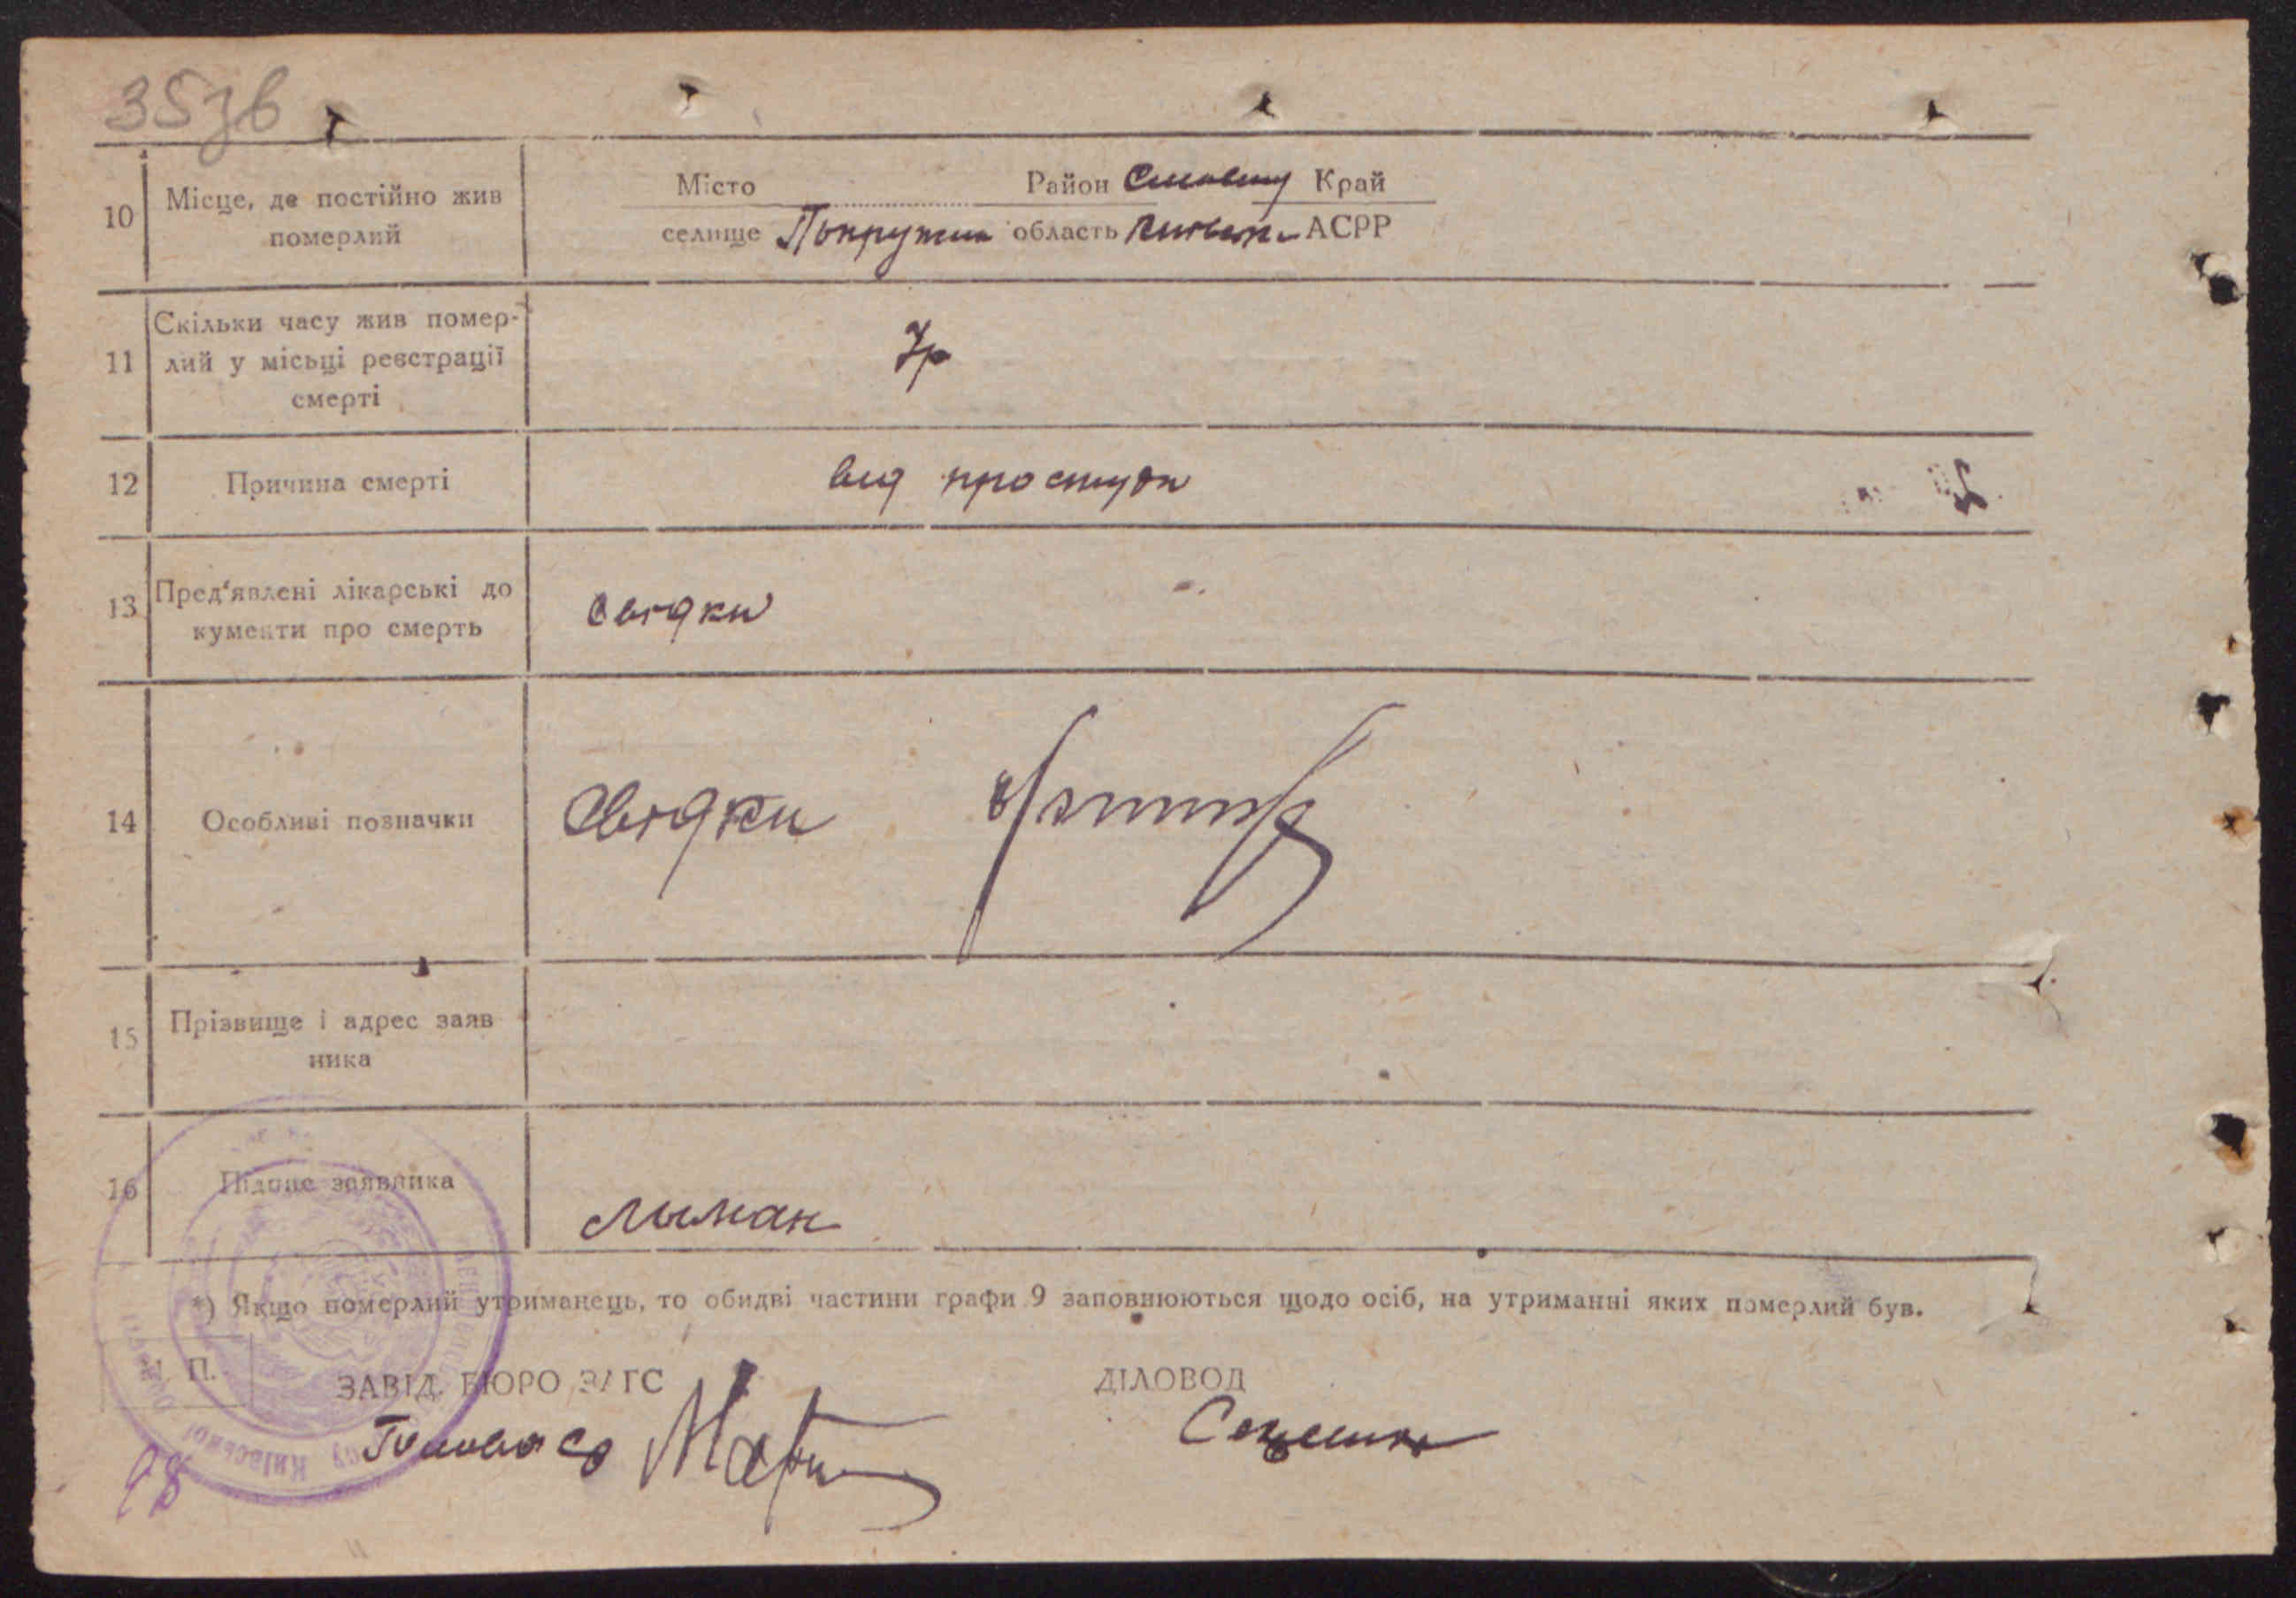 35зв
10
Місце, де постійно жив
померлий
Місто Район Край
селище область АСРР
11
Скільки часу жив помер-
лий у місьці реєстрації
смерті
7р
12
Причина смерті
від простуди
13
Пред'явлені лікарські до
кументи про смерть
свідки
14
Особливі позначки
свідки
15
Прізвище і адрес заяв
ника
16
Підпис заявника
Лыман
*) Якщо померлий утриманець, то обидві частини графи 9 заповнюються щодо осіб, на утриманні яких померлий був.
М. П.
ЗАВІД. БЮРО ЗАГС
ДІЛОВОД
Київської
98